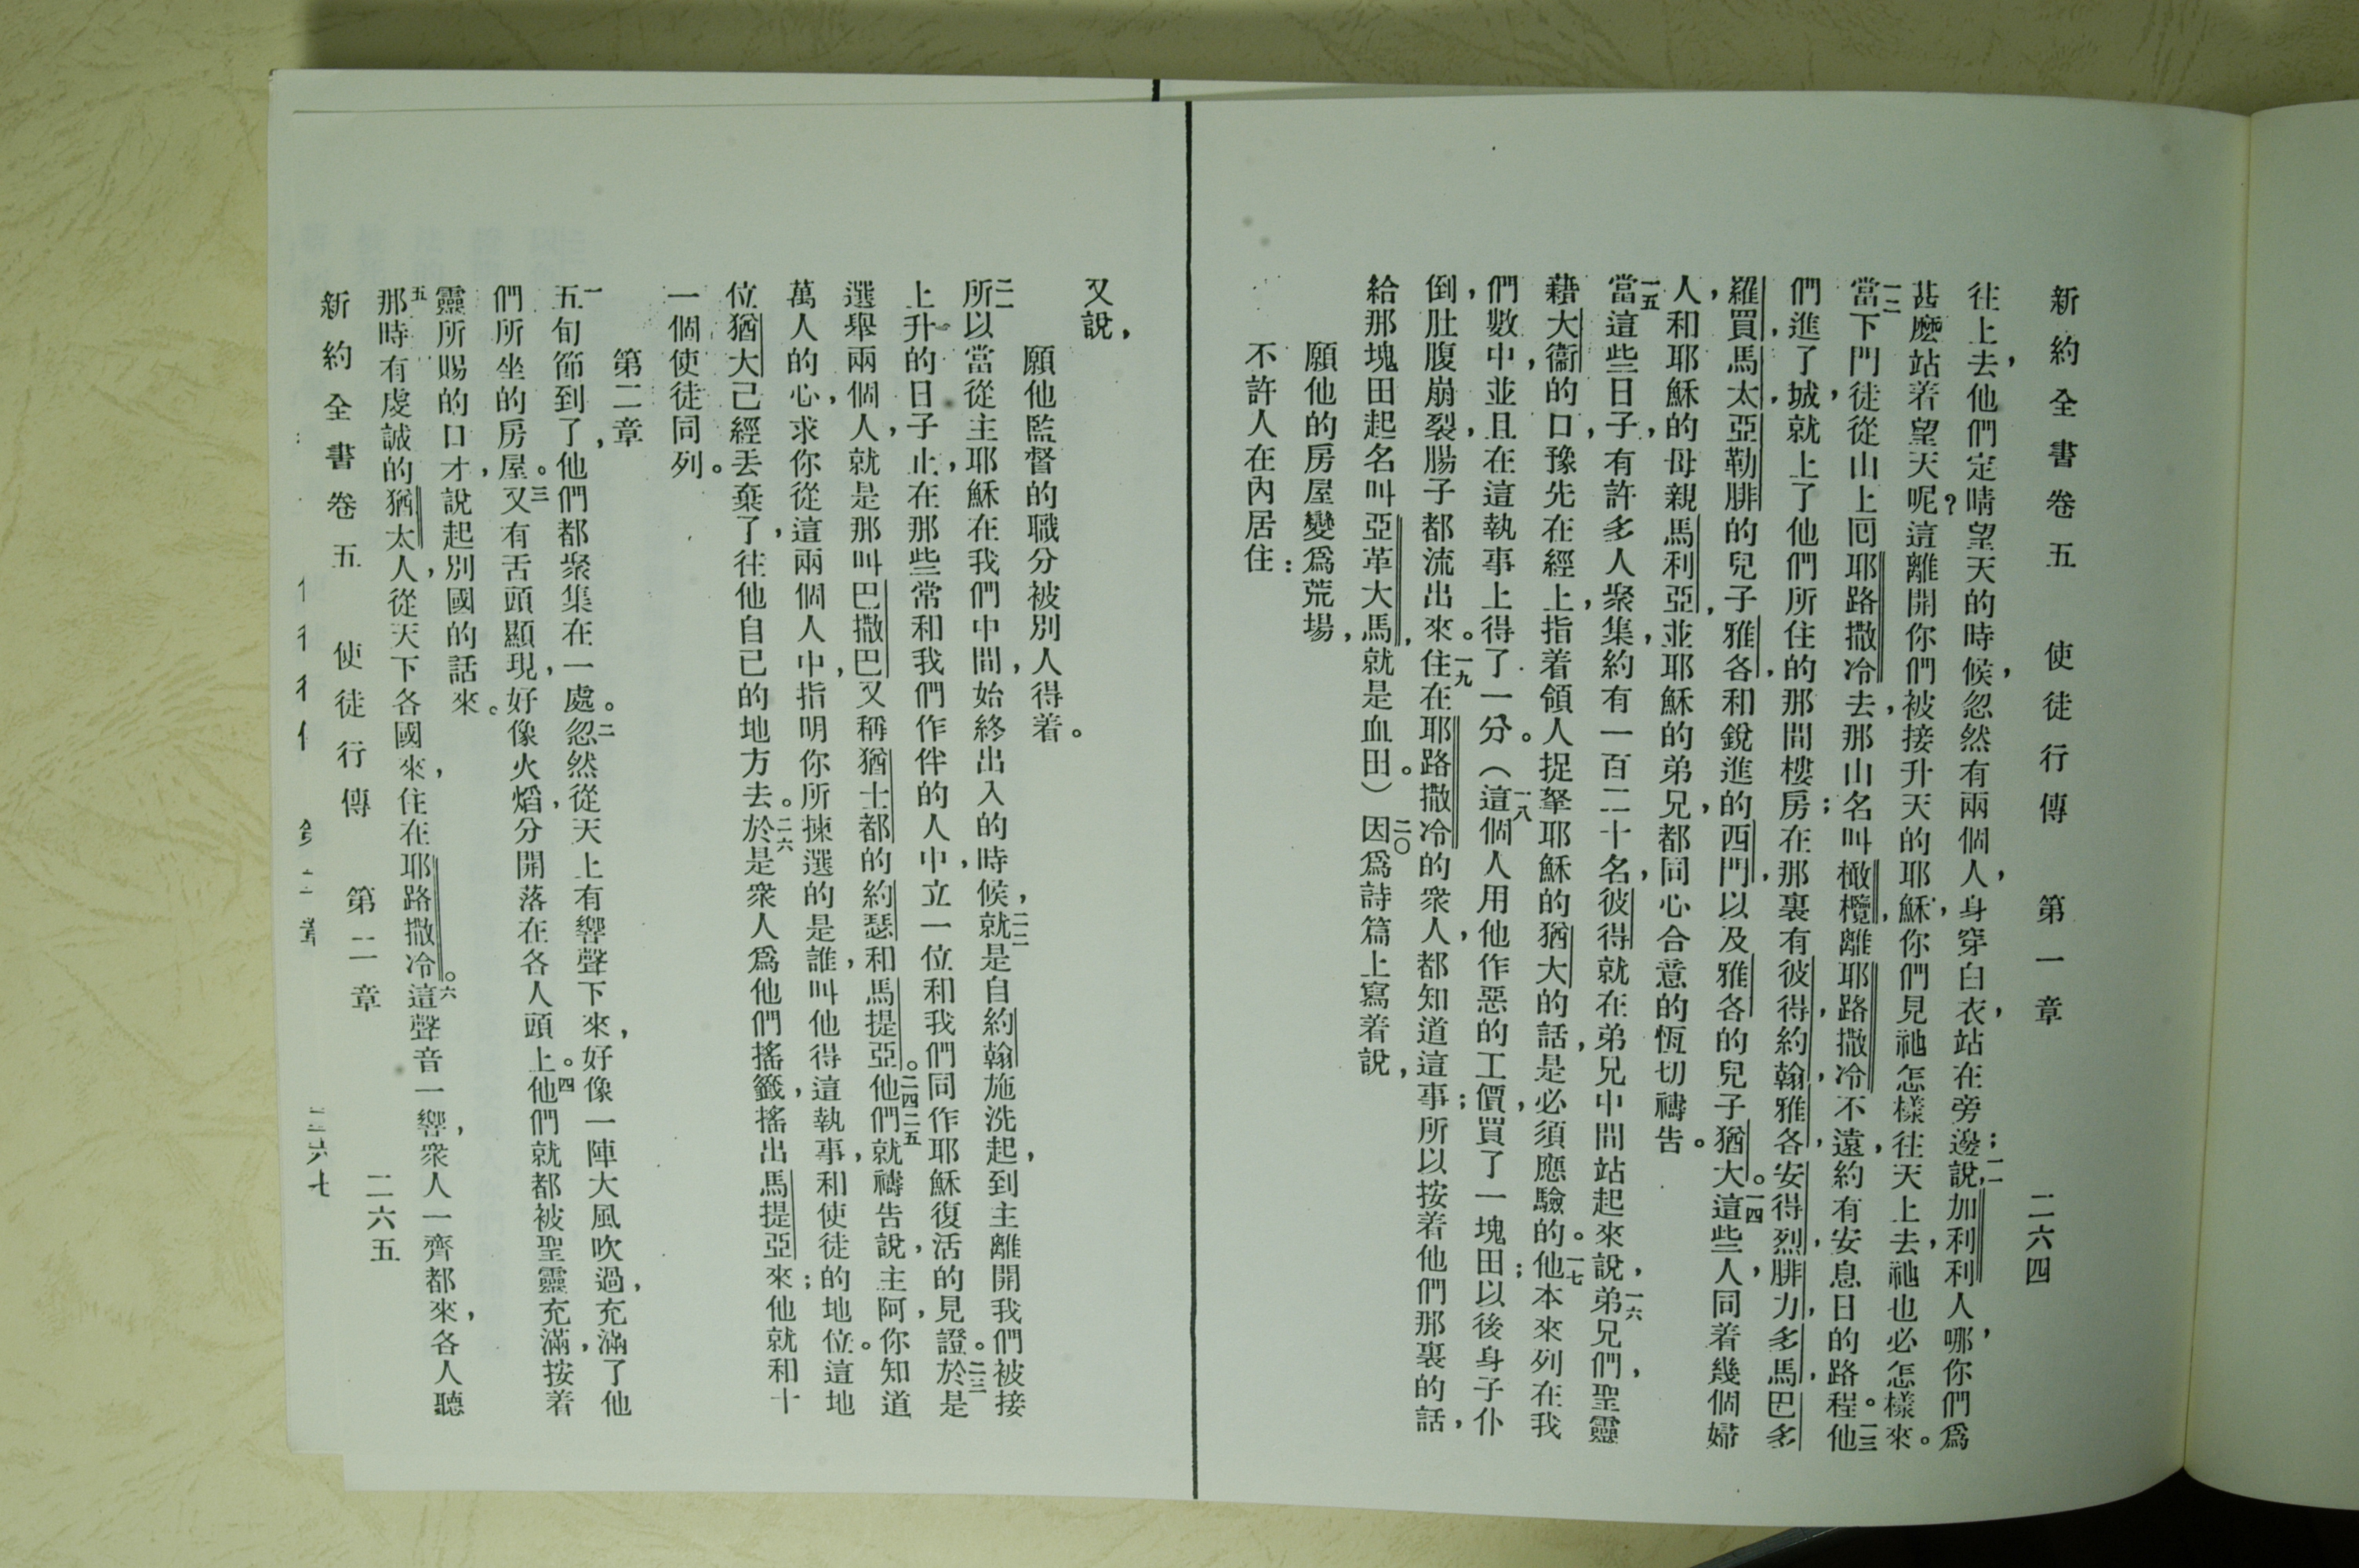 新約全書卷五 使徒行傳 第一章 二六四
往上去，他們定睛望天的時候，忽然有兩個人，身穿白衣，站在旁邊；說，一一加利利人哪，你們爲
甚麼站着望天呢？這離開你們被接升天的耶穌，你們見祂怎樣往天上去，祂也必怎樣來。
一二當下門徒從山上囘耶路撒冷去，那山名叫橄欖，離耶路撒冷不遠，約有安息日的路程。一三他
們進了城，就上了他們所住的那間樓房；在那裏有彼得，約翰，雅各，安得烈，腓力，多馬，巴多
羅買，馬太，亞勒腓的兒子雅各，和銳進的西門，以及雅各的兒子猶大。一四這些人，同着幾個婦
人，和耶穌的母親馬利亞，並耶穌的弟兄，都同心合意的恆切禱告。
一五當這些日子，有許多人聚集，約有一百二十名，彼得就在弟兄中間站起來說，一六弟兄們，聖靈
藉大衞的口，豫先在經上，指着領人捉拏耶穌的猶大的話，是必須應驗的。一七他本來列在我
們數中，並且在這執事上得了一分。（一八這個人用他作惡的工價，買了一塊田；以後身子仆
倒，肚腹崩裂，腸子都流出來。一九住在耶路撒冷的衆人，都知道這事；所以按着他們那裏的話，
給那塊田起名叫亞革大馬，就是血田。）二〇因爲詩篇上寫着說，
願他的房屋變爲荒場，
不許人在內居住：
又說，
願他監督的職分被別人得着。
二一所以當從主耶穌在我們中間，始終出入的時候，二二就是自約翰施洗起，到主離開我們被接
上升的日子止，在那些常和我們作伴的人中，立一位和我們同作耶穌復活的見證。二三於是
選舉兩個人，就是那叫巴撒巴又稱猶士都的約瑟，和馬提亞。二四二五他們就禱告說，主阿，你知道
萬人的心，求你從這兩個人中，指明你所揀選的是誰，叫他得這執事，和使徒的地位。這地
位猶大已經丟棄了，往他自己的地方去。二六於是衆人爲他們搖籤，搖出馬提亞來；他就和十
一個使徒同列。
第二章
一五旬節到了，他們都聚集在一處。二忽然從天上有響聲下來，好像一陣大風吹過，充滿了他
們所坐的房屋。三又有舌頭顯現，好像火熖，分開落在各人頭上。四他們就都被聖靈充滿，按着
靈所賜的口才，說起別國的話來。
五那時有虔誠的猶太人，從天下各國來，住在耶路撒冷。六這聲音一響，衆人一齊都來，各人聽
新約全書卷五 使徒行傳 第二章 二六五